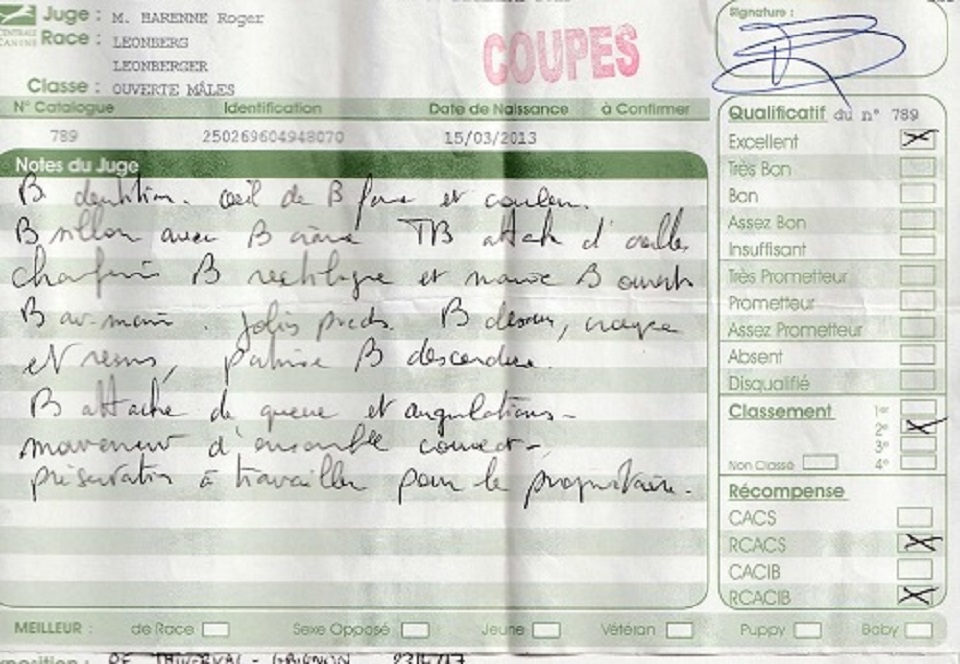 CENTRALE
CANINE
Juge : M. HARENNE Roger
Race : LEONBERG
LEONBERGER
Classe : OUVERTE MÂLES
COUPES
Signature :
N° Catalogue Identification Date de Naissance à Confirmer
789 250269604948070 15/03/2013
Notes du Juge
B dentition. œil de B forme et couleur.
B sillon avec B crâne TB attache d'oreilles
chanfrein B rectiligne et narine B ouverte
B av-main. Jolis pieds. B dessus, croupe
et reins, poitrine B descendue.
B attache de queue et angulations-
mouvement d'ensemble correct-
présentation à travailler pour le propriétaire.
Qualificatif du n° 789
Excellent
Très Bon
Bon
Assez Bon
Insuffisant
Très Prometteur
Prometteur
Assez Prometteur
Absent
Disqualifié
Classement 1er
2e
3e
Non Classé 4e
Récompense
CACS
RCACS
CACIB
RCACIB
MEILLEUR : de Race Sexe Opposé Jeune Vétéran Puppy Baby
DE THIVERVAL - GRIGNON 23/4/17